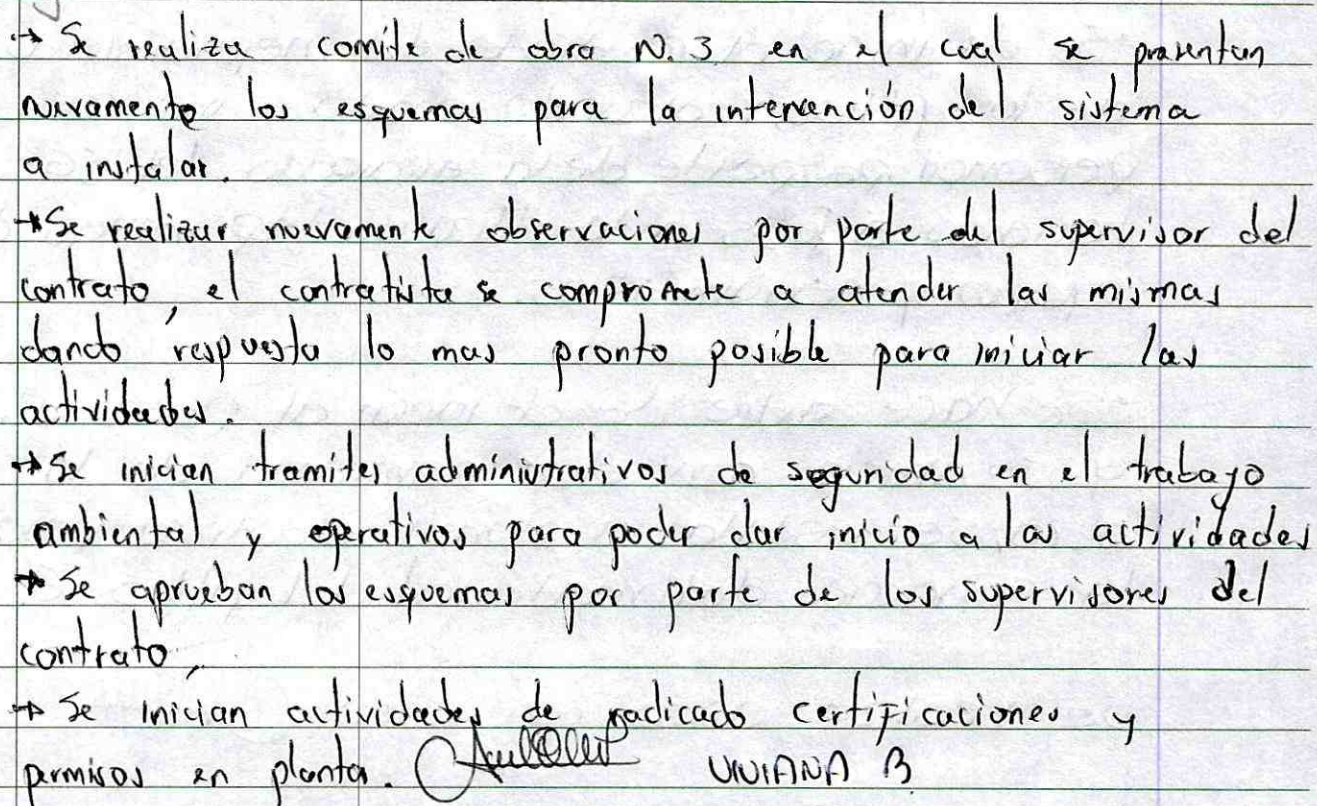 → Se realiza comite de obra N. 3 en el cual se presentan
nuevamente los esquemas para la intervención del sistema
a instalar.
→ Se realizar nuevamente observaciones por parte del supervisor del
contrato, el contratista se compromete a atender las mismas
dando respuesta lo mas pronto posible para iniciar las
actividades.
→ Se inician tramites administrativos de seguridad en el trabajo
ambiental y operativos para poder dar inicio a las actividades
→ Se aprueban los esquemas por parte de los supervisores del
contrato,
→ Se inician actividades de radicado certificaciones y
permisos en planta. VIVIANA B